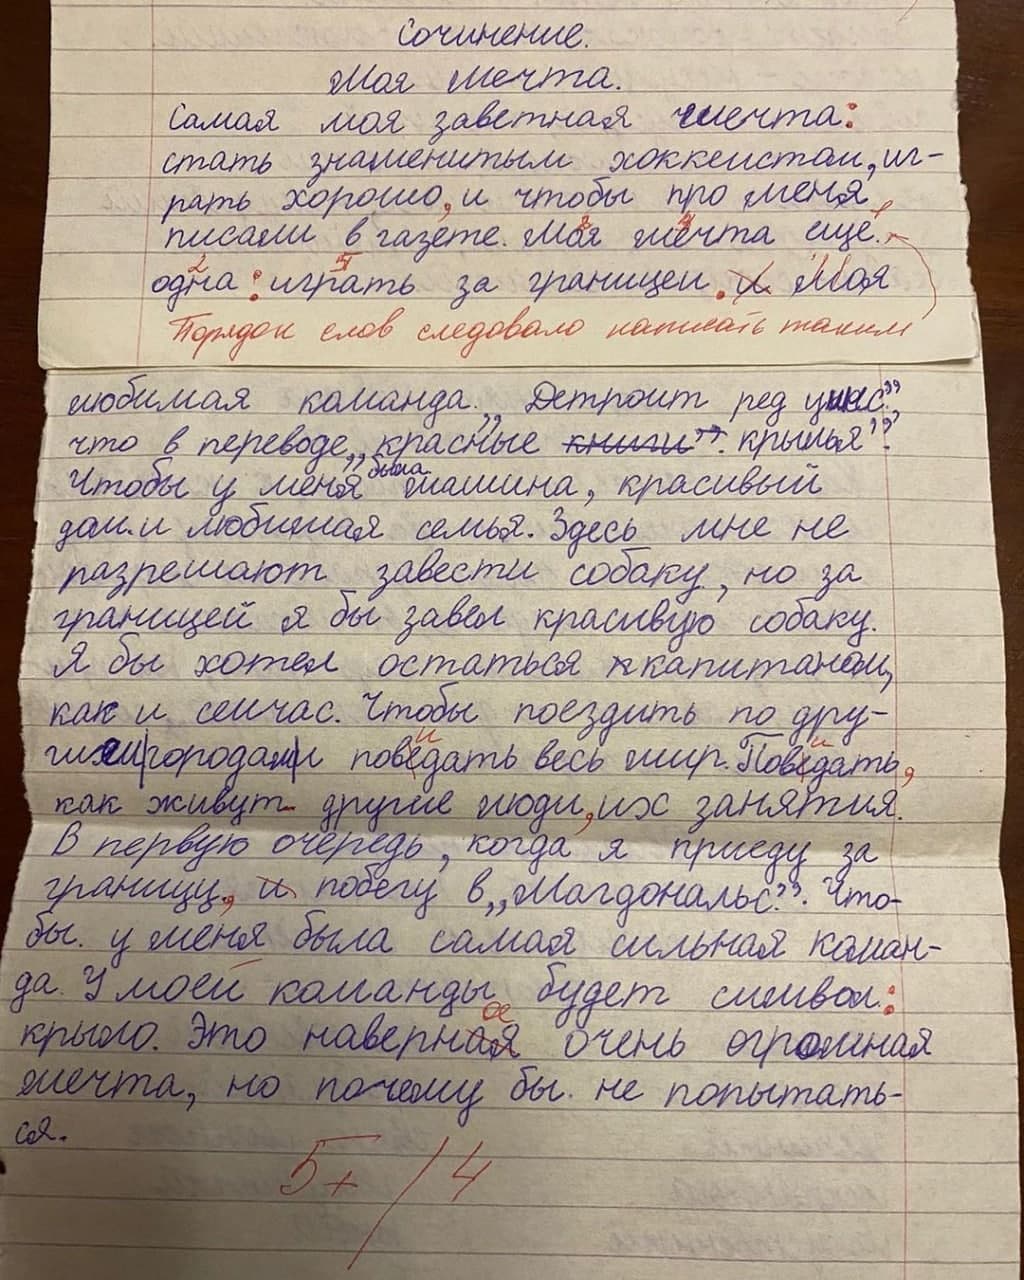 Сочинение.
Моя мечта.
Самая моя заветная мечта:
стать знаменитым хоккеистом, иг-
рать хорошо, и чтобы про меня
писали в газете. Моя мечта ещё
одна: играть за границей. и Моя
Порядок слов следовало написать таким
любимая команда „Детроит ред уинс”,
что в переводе „красные книги”. крылья”.
Чтобы у меня была машина, красивый
дом и любимая семья. Здесь мне не
разрешают завести собаку, но за
границей я бы завел красивую собаку.
Я бы хотел остаться капитаном,
как и сейчас. Чтобы поездить по дру-
гим городам и поведать весь мир. Поведать,
как живут другие люди, их занятия.
В первую очередь, когда я приеду за
границу, и побегу в „Магдональс”. Что-
бы у меня была самая сильная коман-
да. У моей команды будет символ:
крыло. Это наверная очень огромная
мечта, но почему бы не попытать-
ся.
5+/4